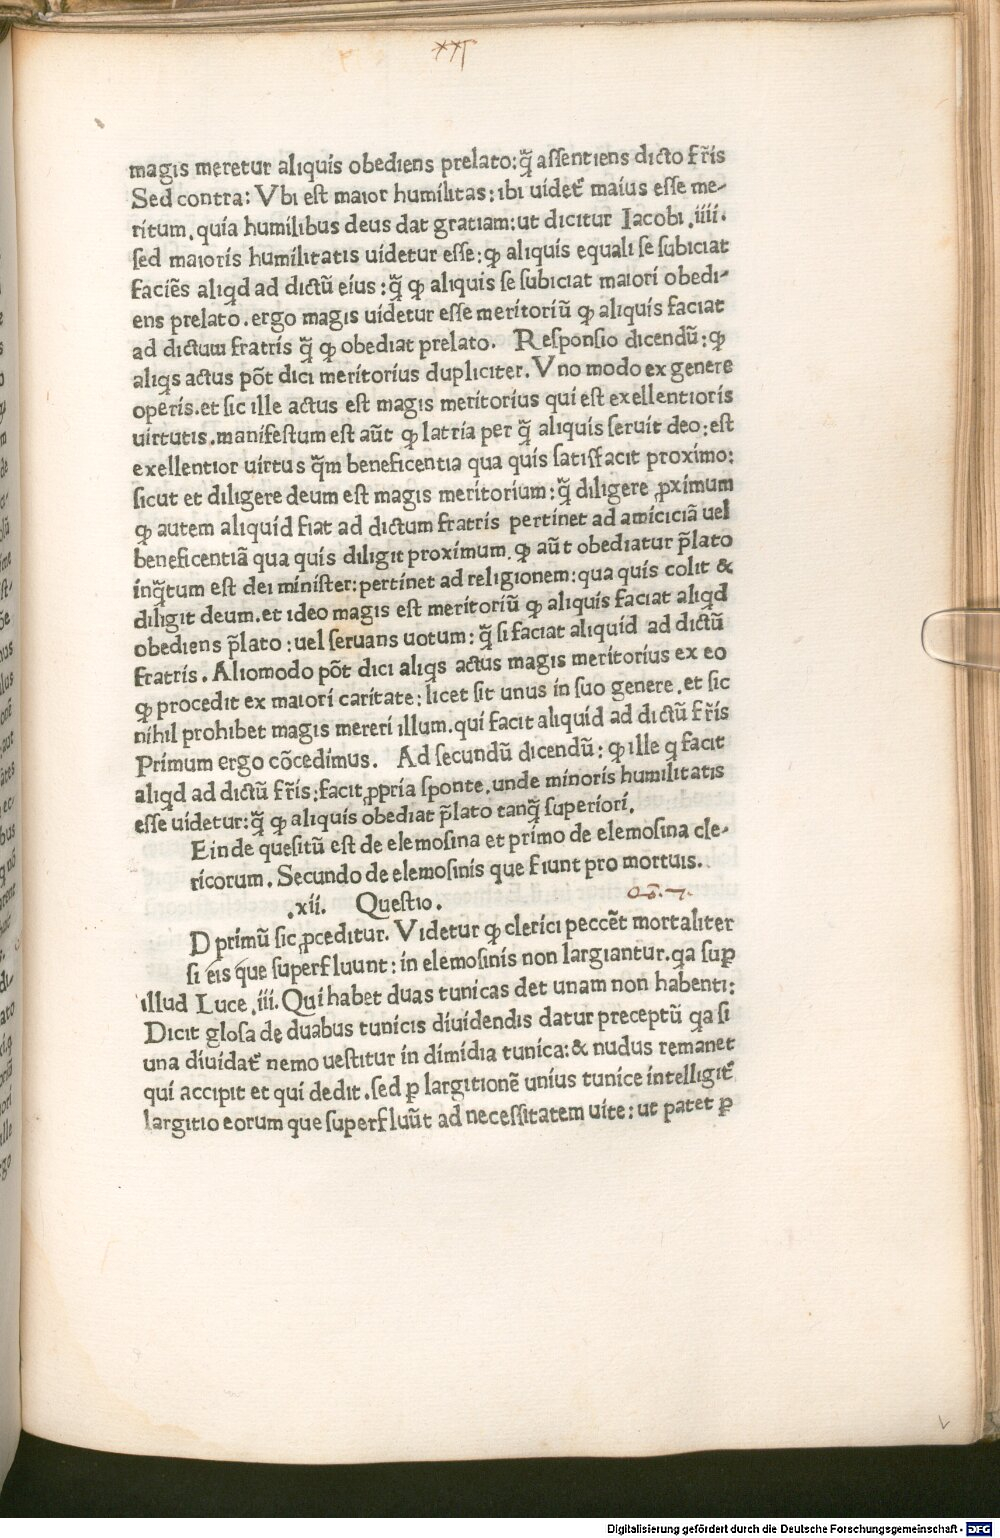 magis meretur aliquis obediens prelato:q̃ assentiens dicto fr̃is
Sed contra: Vbi est maior humilitas: ibi uidet᷑ maius esse me-
ritum. quia humilibus deus dat gratiam: ut dicitur Iacobi .iiii.
sed maioris humilitatis uidetur esse: ꝙ aliquis equali se subiciat
faciẽs aliqd ad dictũ eius: q̃ ꝙ aliquis se subiciat maiori obedi-
ens prelato. ergo magis uidetur esse meritoriũ ꝙ aliquis faciat
ad dictum fratris q̃ ꝙ obediat prelato. Responsio dicendũ: ꝙ
aliqs actus põt dici meritorius dupliciter. Vno modo ex genere
operis. et sic ille actus est magis meritorius qui est exellentioris
uirtutis. manifestum est aũt ꝙ latria per q̃ aliquis seruit deo: est
exellentior uirtus q̃m beneficentia qua quis satisfacit proximo:
sicut et diligere deum est magis meritorium: q̃ diligere ꝓximum
ꝙ autem aliquid fiat ad dictum fratris pertinet ad amiciciã uel
beneficentiã qua quis diligit proximum. ꝙ aũt obediatur p̃lato
inq̃tum est dei minister: pertinet ad religionem: qua quis colit &
diligit deum. et ideo magis est meritoriũ ꝙ aliquis faciat aliqd
obediens p̃lato: uel seruans uotum: q̃ si faciat aliquid ad dictũ
fratris. Aliomodo põt dici aliqs actus magis meritorius ex eo
ꝙ procedit ex maiori caritate: licet sit unus in suo genere. et sic
nihil prohibet magis mereri illum. qui facit aliquid ad dictũ fr̃is
Primum ergo cõcedimus. Ad secundũ dicendũ: ꝙ ille q facit
aliqd ad dictũ fr̃is: facit ꝓpria sponte. unde minoris humilitatis
esse uidetur: q̃ ꝙ aliquis obediat p̃lato tanq̃ superiori.
Einde quesitũ est de elemosina et primo de elemosina cle-
ricorum. Secundo de elemosinis que fiunt pro mortuis.
.xii. Questio.
D primũ sic ꝓceditur. Videtur ꝙ clerici peccẽt mortaliter
si eis que superfluunt: in elemosinis non largiantur. qa suꝑ
illud Luce .iii. Qui habet duas tunicas det unam non habenti:
Dicit glosa de duabus tunicis diuidendis datur preceptũ qa si
una diuidat᷑ nemo uestitur in dimidia tunica: & nudus remanet
qui accipit et qui dedit. sed ꝑ largitionẽ unius tunice intelligit᷑
largitio eorum que superfluũt ad necessitatem uite: ut patet ꝑ
Digitalisierung gefördert durch die Deutsche Forschungsgemeinschaft - DFG